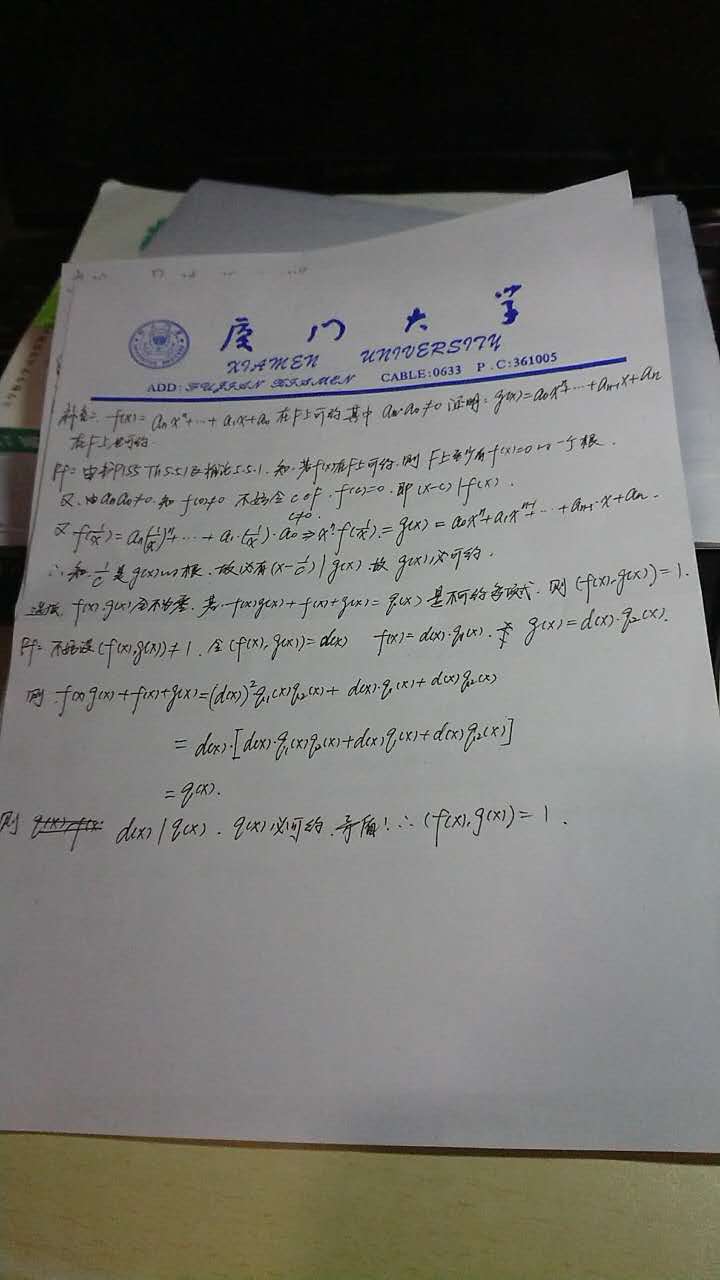 厦门大学
XIAMEN UNIVERSITY
ADD: FUJIAN XIAMEN CABLE:0633 P.C:361005
补充二 f(x)=aₙxⁿ+…+a₁x+a₀ 在F上可约 其中 aₙ·a₀≠0 证明: g(x)=a₀xⁿ+…+aₙ₋₁x+aₙ
在F上也可约.
Pf= 由 P155 Th5.5.1及推论5.5.1. 知. 若f(x)在F上可约, 则 F上至少有f(x)=0的一个根.
又. 由aₙa₀≠0. 知 f(0)≠0 不妨令 c∈F. f(c)=0. 即 (x-c)|f(x).
c≠0.
又 f(1/x)=aₙ(1/x)ⁿ+…+a₁·(1/x)·a₀ ⇒ xⁿ·f(1/x)=g(x)=a₀xⁿ+a₁xⁿ⁻¹+…+aₙ₋₁·x+aₙ.
∴知 1/c 是g(x)的根. 故必有(x-1/c)|g(x) 故 g(x)必可约.
f(x).g(x)全不为零. 若 f(x)g(x)+f(x)+g(x)=q(x) 是不可约多项式. 则 (f(x),g(x))=1.
Pf= 不妨设(f(x),g(x))≠1. 令(f(x),g(x))=d(x) f(x)=d(x)·q₁(x). g(x)=d(x)·q₂(x).
则 f(x)g(x)+f(x)+g(x)=(d(x))²q₁(x)q₂(x)+d(x)·q₁(x)+d(x)q₂(x)
=d(x)·[d(x)·q₁(x)q₂(x)+d(x)q₁(x)+d(x)q₂(x)]
=q(x).
则 d(x)|q(x). q(x)必可约. 矛盾! ∴(f(x),g(x))=1.